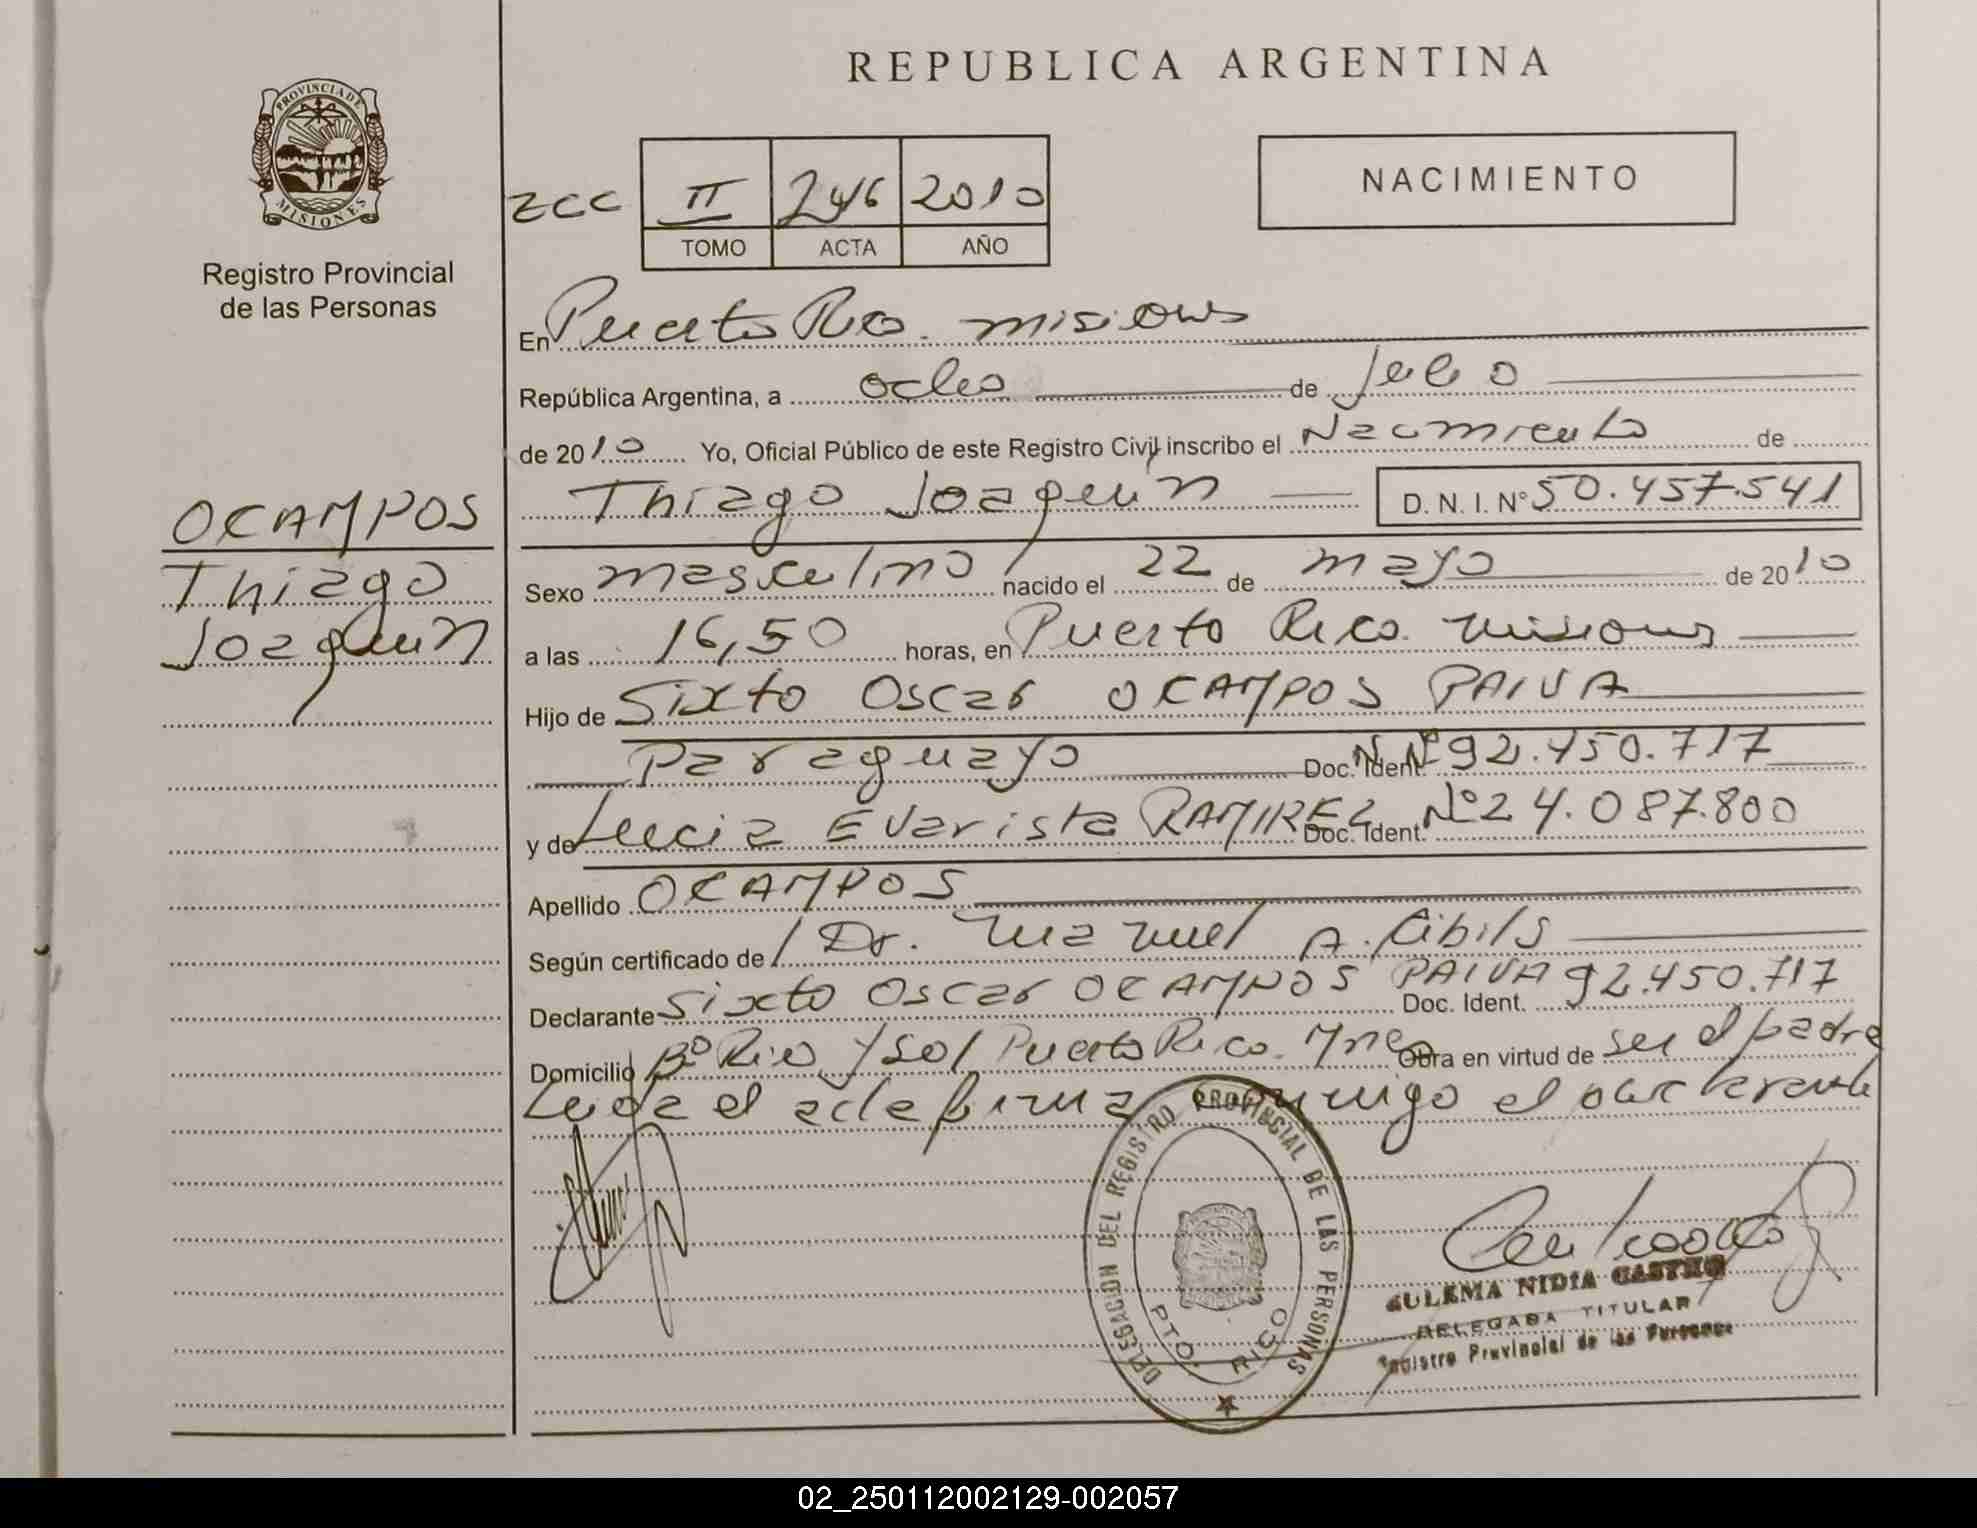 REPUBLICA ARGENTINA
PROVINCIA DE
MISIONES
Registro Provincial
de las Personas
NACIMIENTO
II 246 2010
TOMO ACTA AÑO
En Puerto Rico. misiones
República Argentina, a ocho de Julio
de 2010 Yo, Oficial Público de este Registro Civil inscribo el Nacimiento de
Thiago Joaquin D. N. I. Nº 50.457.541
OCAMPOS
Thiago
Joaquin
Sexo masculino nacido el 22 de mayo de 2010
a las 16,50 horas, en Puerto Rico. misiones
Hijo de Sixto Oscar OCAMPOS PAIVA
Paraguayo Doc. Ident. Nº 92.450.717
y de Lucia Evarista RAMIREZ Doc. Ident. Nº 24.087.800
Apellido OCAMPOS
Según certificado de Dr. Manuel A. Cibils
Declarante Sixto Oscar OCAMPOS PAIVA Doc. Ident. 92.450.717
Domicilio Bº Rio y Sol Puerto Rico. Mnes Obra en virtud de ser el padre
Leida el acta firma conmigo el declarante
DELEGACION DEL REGISTRO PROVINCIAL DE LAS PERSONAS
PTO. RICO
ZULEMA NIDIA CASTRO
DELEGADA TITULAR
Registro Provincial de las Personas
02_250112002129-002057